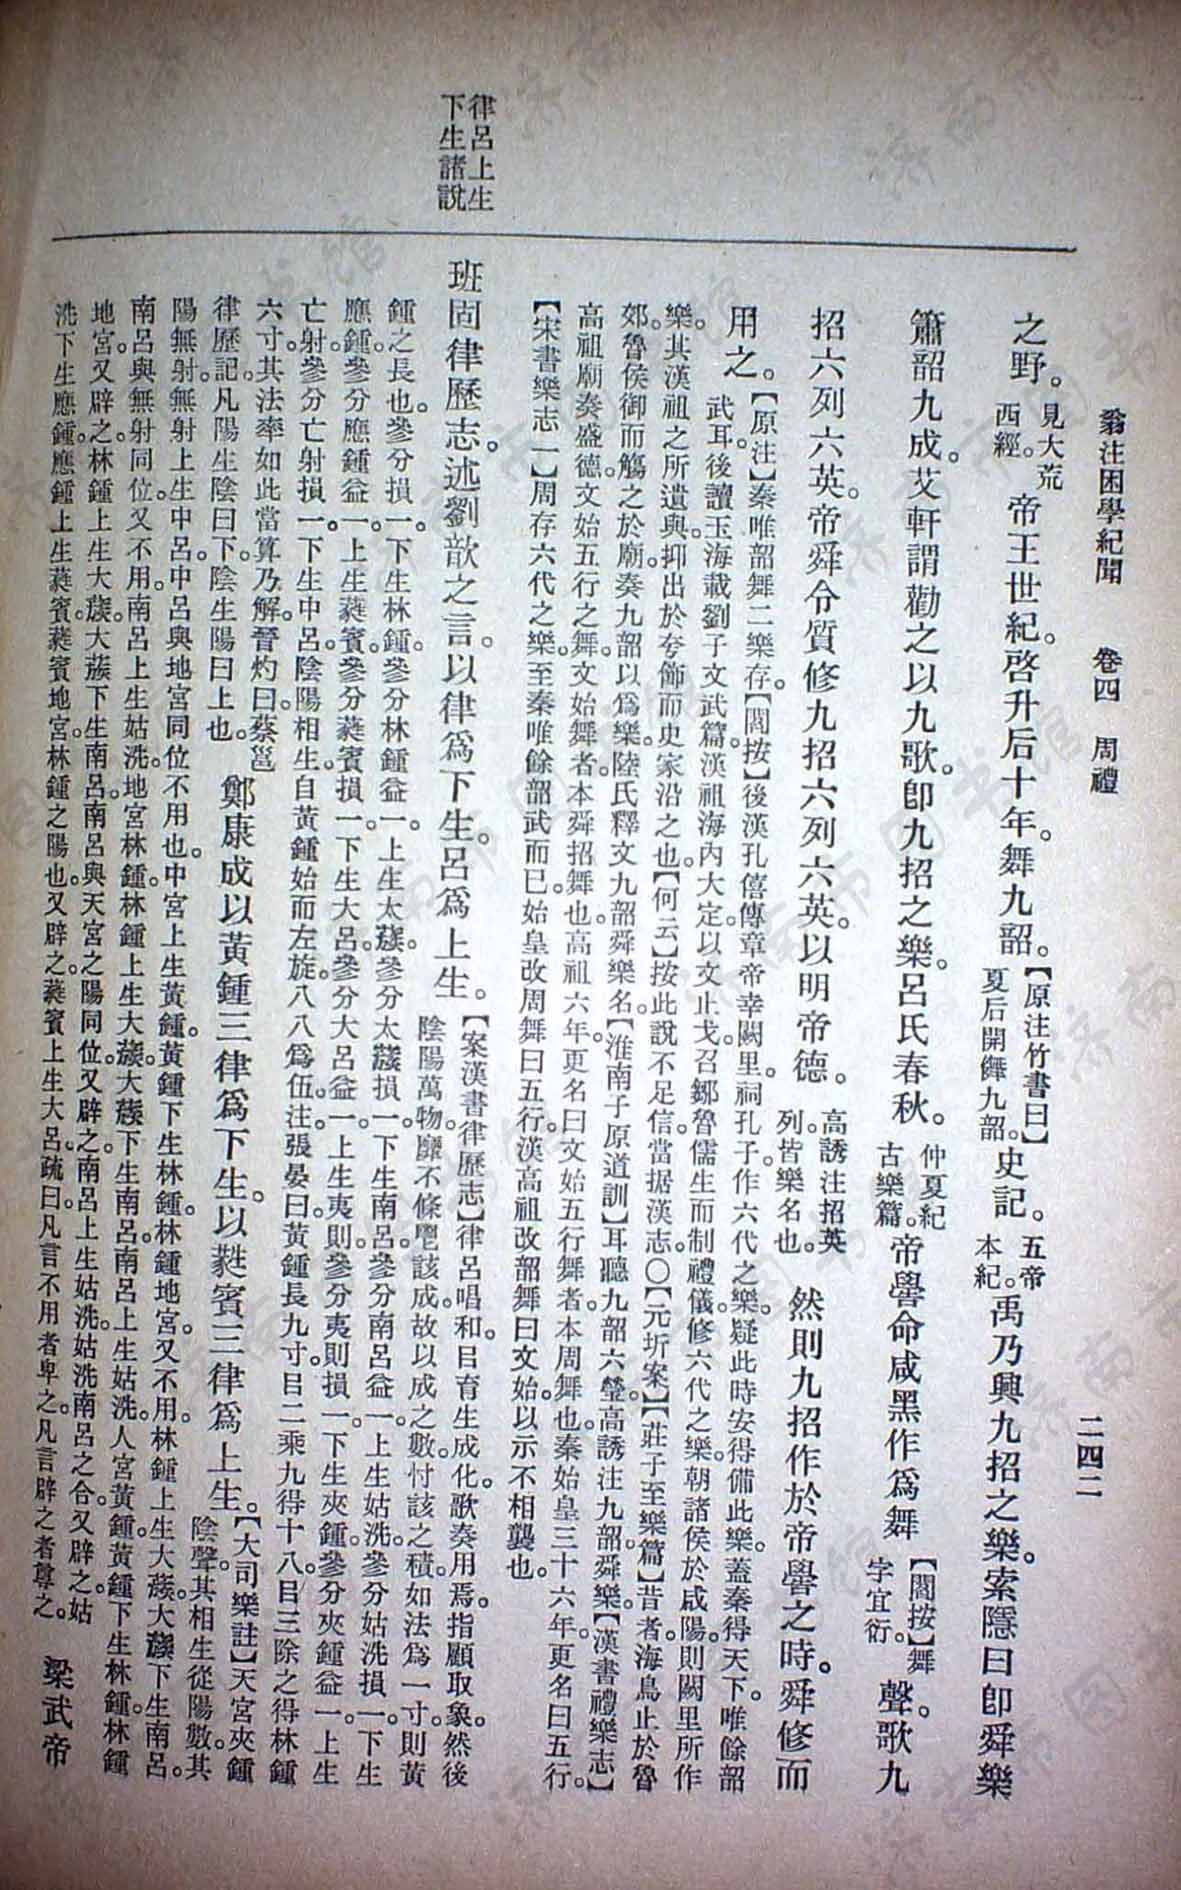 翁注困學紀聞　卷四　周禮　二四二
律呂上生
下生諸說
之野。見大荒西經。帝王世紀。啓升后十年。舞九韶。【原注竹書曰】夏后開儛九韶。史記。五帝本紀。禹乃興九招之樂。索隱曰卽舜樂
簫韶九成。艾軒謂勸之以九歌。卽九招之樂。呂氏春秋。仲夏紀古樂篇。帝嚳命咸黑作爲舞【閻按】舞字宜衍。聲。歌九
招六列六英。帝舜令質修九招六列六英。以明帝德。高誘注招英列。皆樂名也。然則九招作於帝嚳之時。舜修而
用之。【原注】秦唯韶舞二樂存。【閻按】後漢孔僖傳章帝幸闕里。祠孔子。作六代之樂。疑此時安得備此樂。蓋秦得天下。唯餘韶
武耳。後讀玉海載劉子文武篇。漢祖海內大定。以文止戈。召鄒魯儒生而制禮儀。修六代之樂。朝諸侯於咸陽。則闕里所作
樂。其漢祖之所遺與。抑出於夸飾而史家沿之也。【何云】按此說不足信。當据漢志。〇【元圻案】【莊子至樂篇】昔者。海鳥止於魯
郊。魯侯御而觴之於廟。奏九韶以爲樂。陸氏釋文九韶舜樂名。【淮南子原道訓】耳聽九韶六瑩。高誘注九韶。舜樂。【漢書禮樂志】
高祖廟奏盛德。文始五行之舞。文始舞者。本舜招舞也。高祖六年。更名曰文始五行舞者。本周舞也。秦始皇三十六年。更名曰五行。
【宋書樂志一】周存六代之樂。至秦唯餘韶武而已。始皇改周舞曰五行。漢高祖改韶舞曰文始。以示不相襲也。
班固律歷志。述劉歆之言。以律爲下生。呂爲上生。【案漢書律歷志】律呂唱和。目育生成化。歌奏用焉。指顧取象。然後
陰陽萬物。靡不條鬯該成。故以成之數。忖該之積。如法爲一寸。則黃
鍾之長也。參分損一。下生林鍾。參分林鍾益一。上生太蔟。參分太蔟損一。下生南呂。參分南呂益一。上生姑洗。參分姑洗損一。下生
應鍾。參分應鍾益一。上生蕤賓。參分蕤賓損一。下生大呂。參分大呂益一。上生夷則。參分夷則損一。下生夾鍾。參分夾鍾益一。上生
亡射。參分亡射損一。下生中呂。陰陽相生。自黃鍾始而左旋。八八爲伍。注。張晏曰。黃鍾長九寸。目二乘九得十八。目三除之得林鍾
六寸。其法率如此。當算乃解。晉灼曰。蔡邕
律歷記。凡陽生陰曰下。陰生陽曰上也。鄭康成以黃鍾三律爲下生。以蕤賓三律爲上生。【大司樂註】天宮夾鍾
陰聲。其相生從陽數。其
陽無射。無射上生中呂。中呂與地宮同位。不用也。中宮上生黃鍾。黃鍾下生林鍾。林鍾地宮。又不用。林鍾上生大蔟。大蔟下生南呂。
南呂與無射同位。又不用。南呂上生姑洗。地宮林鍾。林鍾上生大蔟。大蔟下生南呂。南呂上生姑洗。人宮黃鍾。黃鍾下生林鍾。林鍾
地宮。又辟之。林鍾上生大蔟。大蔟下生南呂。南呂與天宮之陽同位。又辟之。南呂上生姑洗。姑洗南呂之合。又辟之。姑
洗下生應鍾。應鍾上生蕤賓。蕤賓地宮。林鍾之陽也。又辟之。蕤賓上生大呂。疏曰。凡言不用者卑之。凡言辟之者尊之。梁武帝